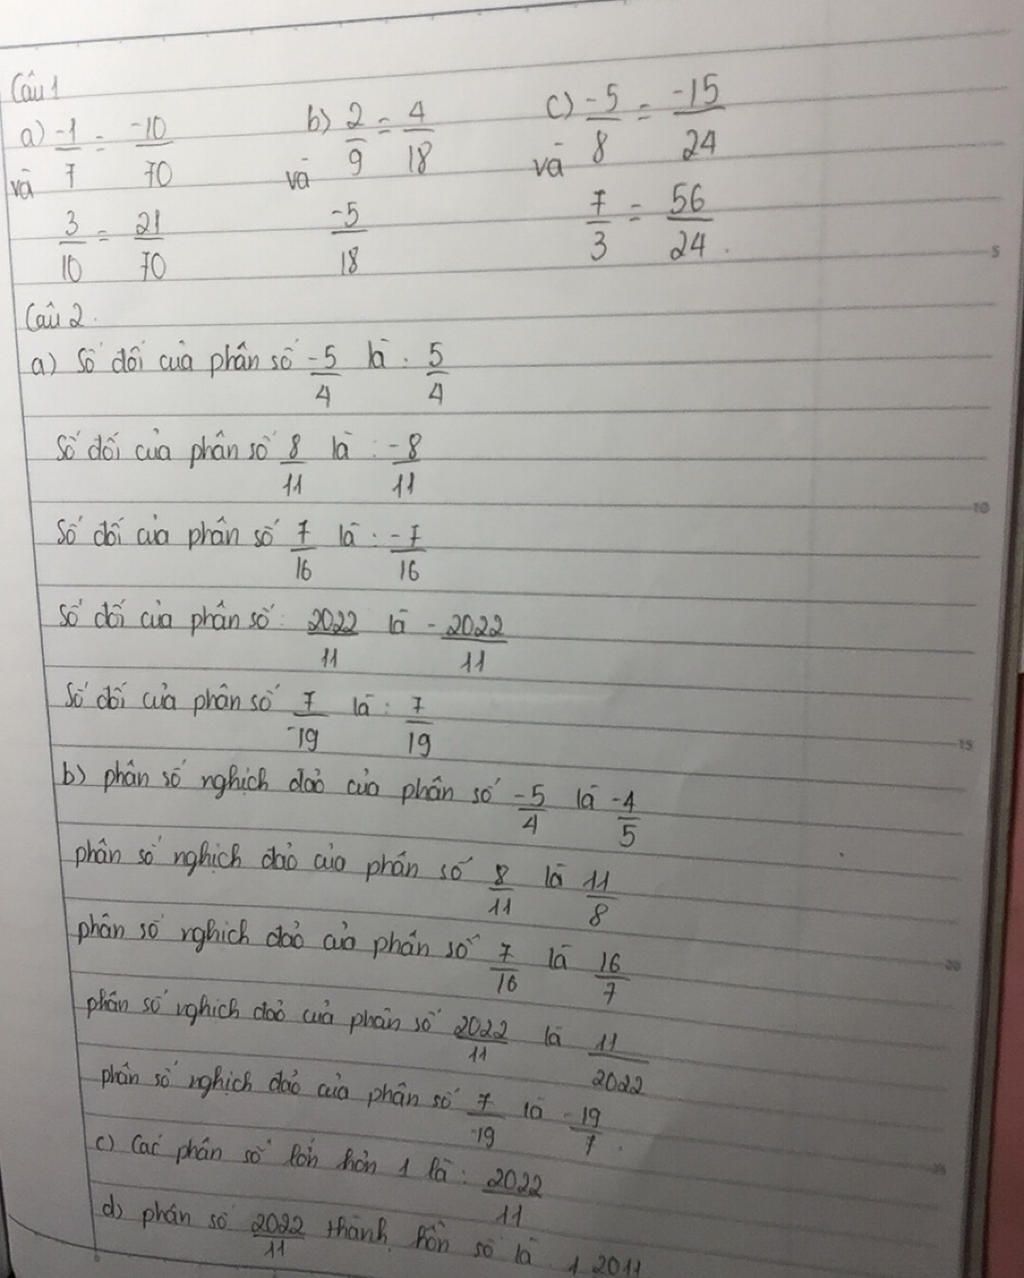 Câu 1
a) -1/7 = -10/70 b) 2/9 = 4/18 c) -5/8 = -15/24
và và và
3/10 = 21/70 -5/18 7/3 = 56/24.
5
Câu 2.
a) Số đối của phân số -5/4 là: 5/4
Số đối của phân số 8/11 là: -8/11
10
Số đối của phân số 7/16 là: -7/16
Số đối của phân số: 2022/11 là -2022/11
Số đối của phân số 7/-19 là: 7/19
15
b) phân số nghịch đảo của phân số -5/4 là -4/5
phân số nghịch đảo của phân số 8/11 là 11/8
phân số nghịch đảo của phân số 7/16 là 16/7
20
phân số nghịch đảo của phân số 2022/11 là 11/2022
phân số nghịch đảo của phân số 7/-19 là -19/7.
c) Các phân số lớn hơn 1 là: 2022/11
d) phân số 2022/11 thành hỗn số là 1 2011